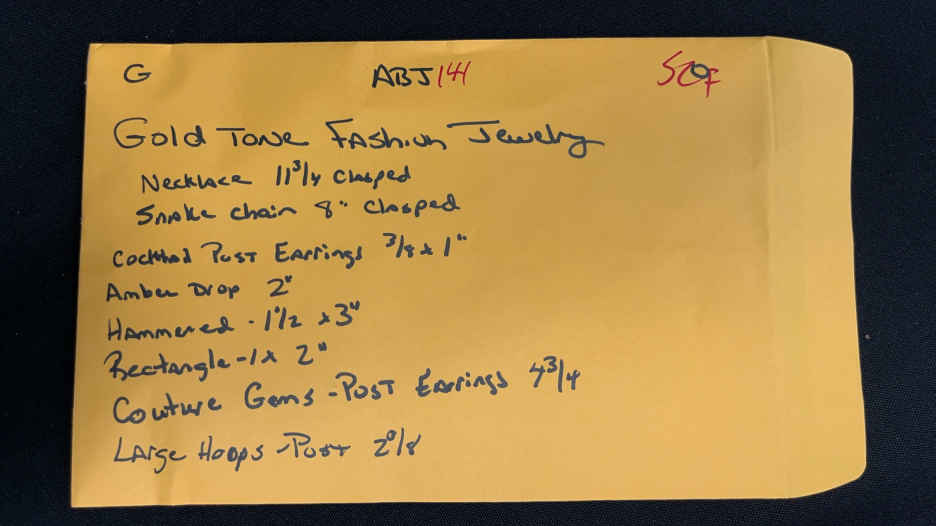 G ABJ 141
Gold Tone Fashion Jewelry
Necklace 11 3/4 clasped
Snake chain 8" clasped
Post Earrings 3/8 x 1"
Amber Drop 2"
Hammered - 1 1/2 x 3"
Rectangle - 1 x 2"
Couture Gems - Post Earrings 4 3/4
Large Hoops - Post